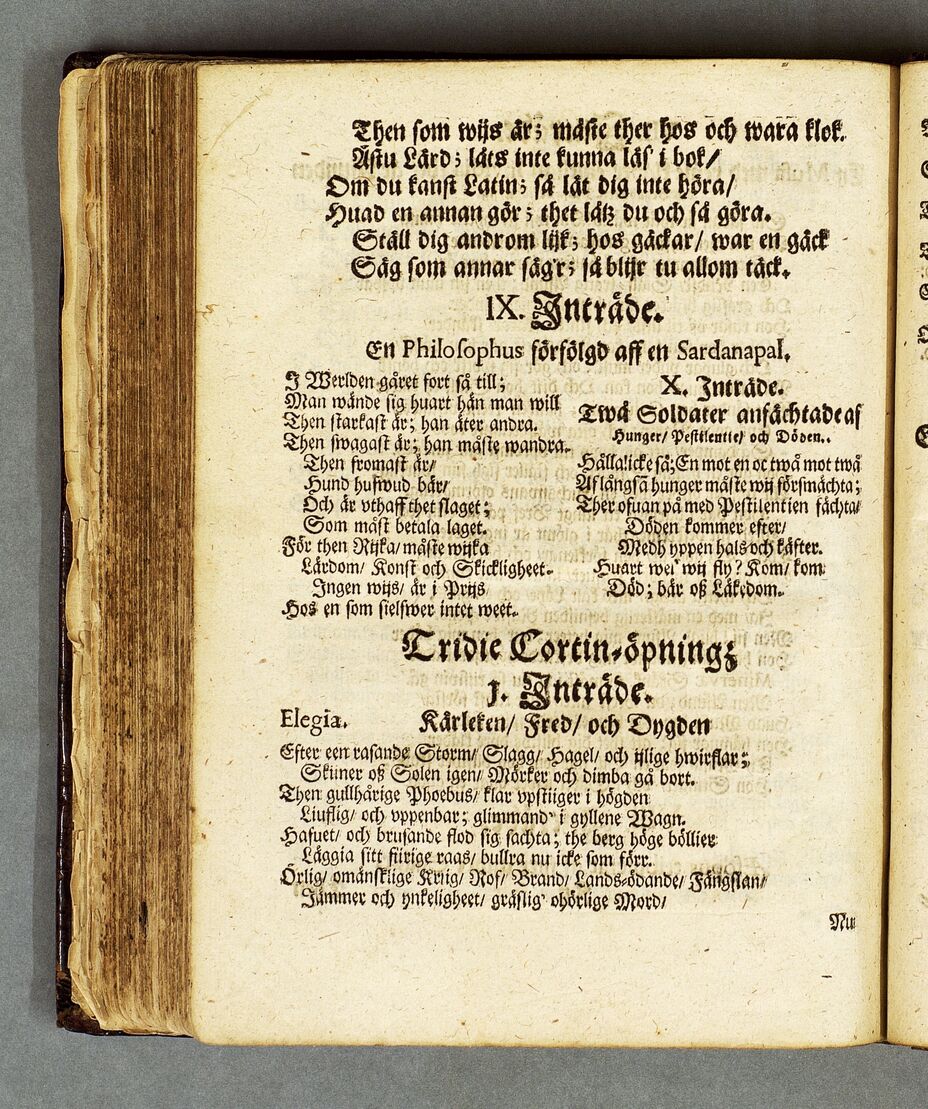 Then som wijs är; måste ther hos och wara klok.
Ästu Lärd; låts inte kunna läs' i bok/
Om du kanst Latin; så låt dig inte höra/
Huad en annan gör; thet låtz du och så göra.
Ställ dig androm lijk; hos gäckar/ war en gäck
Säg som annar säg'r; så blijr tu allom täck.
IX. Inträde.
En Philosophus förfölgd aff en Sardanapal.
I Werlden gåret fort så till;
Man wände sig huart hän man will
Then starkast är; han äter andra.
Then swagast är; han måste wandra.
Then fromast är/
Hund hufwud bär/
Och är vthaff thet slaget;
Som måst betala laget.
För then Rijka/ måste wijka
Lärdom/ Konst och Skickligheet.
Ingen wijs/ är i Prijs
Hos en som sielfwer intet weet.
X. Inträde.
Twå Soldater anfächtade af
Hunger/ Pestilentie/ och Döden.
Hålla! icke så; En mot en oc twå mot twå
Af långsā hunger måste wij försmächta;
Ther ofuan på med Pestilentien fächta/
Döden kommer efter/
Medh yppen hals och käfter.
Huart wel' wij fly? Kom/ kom
Död; bär oß Läkedom.
Tridie Cortin-öpning;
1. Inträde.
Elegia. Kärleken/ Fred/ och Dygden
Efter een rasande Storm/ Slagg/ Hagel/ och ijlige hwirflar;
Skiner oß Solen igen/ Mörker och dimba gå bort.
Then gullhårige Phoebus/ klar vpstiiger i högden
Liuflig/ och vppenbar; glimmand' i gyllene Wagn.
Hafuet/ och brusande flod sig sachta; the berg höge böllier
Läggia sitt fiirige raas/ bullra nu icke som förr.
Örlig/ omänsklige Kriig/ Rof/ Brand/ Lands-ödande/ Fängslan/
Jämmer och ynkeligheet/ gräslig' ohörlige Mord/
Nu